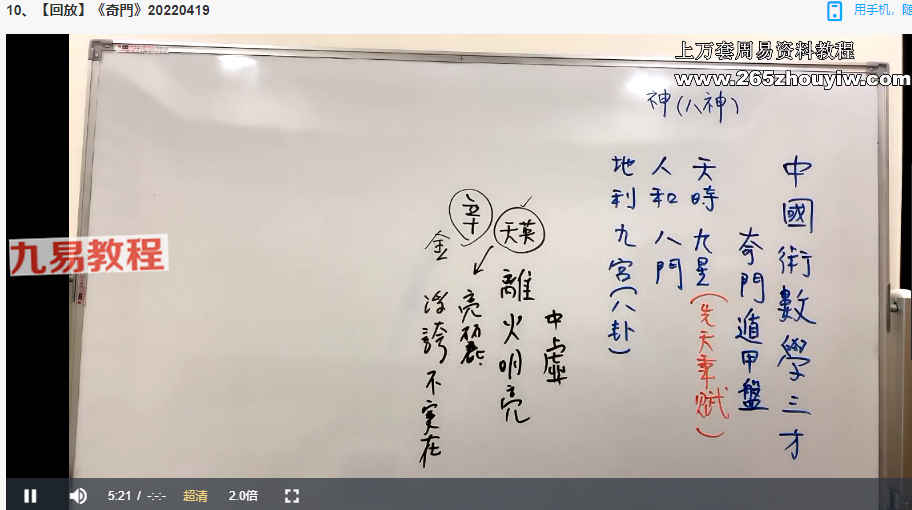 10、【回放】《奇門》20220419
用手机，随
上万套周易资料教程
www.265zhouyiw.com
九易教程
神(八神)
中國術數學三才
奇門遁甲盤
天時 九星(先天稟賦)
人和 八門
地利 九宮(八卦)
中虛
天英
離火明亮
辛
亮麗
金
浮誇不實在
5:21 / -:-:-
超清
2.0倍